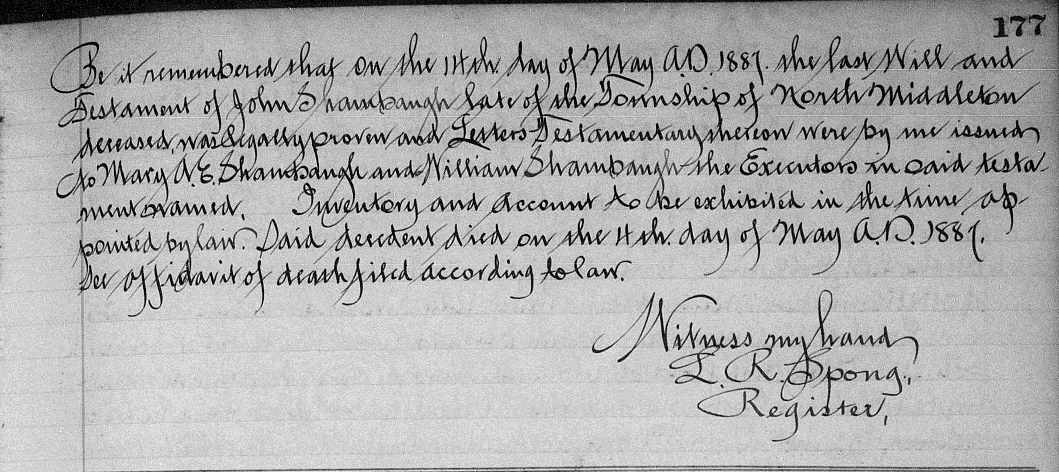 177
Be it remembered that on the 14th. day of May A.D. 1887. the last Will and
Testament of John Shambaugh late of the Township of North Middleton
deceased, was legally proven and Letters Testamentary thereon were by me issued
to Mary A. E. Shambaugh and William Shambaugh the Executors in said testa-
ment named. Inventory and account to be exhibited in the time ap-
pointed by law. Said decedent died on the 4th. day of May A.D. 1887.
See affidavit of death filed according to law.
Witness my hand
L. R. Spong,
Register,